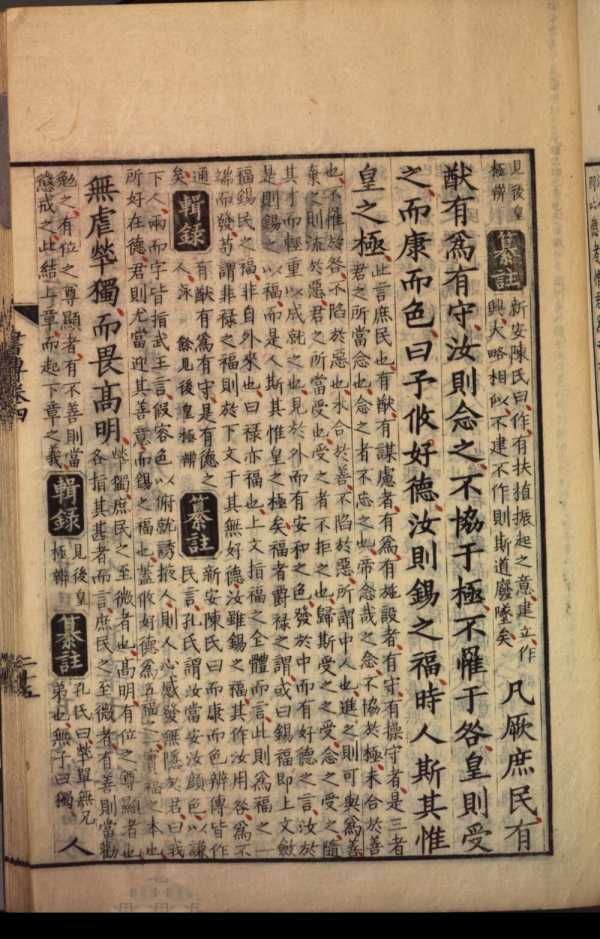 見後皇
極辨
纂註
新安陳氏曰作有扶植振起之意建立作
興大略相似不建不作則斯道廢墜矣
凡厥庶民有
猷有爲有守汝則念之不協于極不罹于咎皇則受
之而康而色曰予攸好德汝則錫之福時人斯其惟
皇之極
此言庶民也有猷有謀慮者有爲有施設者有守有操守者是三者
君之所當念也念之者不忘之也帝念哉之念不協於極未合於善
也不罹於咎不陷於惡也未合於善不陷於惡所謂中人也進之則可與爲善
棄之則流於惡君之所當受也受之者不拒之也歸斯受之之受念之受之隨
其才而輕重以成就之也見於外而有安和之色發於中而有好德之言汝於
是則錫之以福而是人斯其惟皇之極矣福者爵祿之謂或曰錫福即上文斂
福錫民之福非自外來也曰祿亦福也上文指福之全體而言此則爲福之一
端而發苟謂非祿之福則於下文于其無好德汝雖錫之福其作汝用咎爲不
通
矣
輯錄
有猷有爲有守是有德之
人泳 餘見後皇極辨
纂註
新安陳氏曰而康而色辨傳皆作
民言孔氏謂汝當安汝顔色以謙
下人兩而字皆指武王言假容色以俯就誘掖人則人心感發無隱於君曰我
所好在德君則尤當迎其善意而錫之福也蓋攸好德爲五福之一實福之本也
無虐煢獨而畏高明
煢獨庶民之至微者也高明有位之尊顯者也
各指其甚者而言庶民之至微者有善則當勸
勉之有位之尊顯者有不善則當
懲戒之此結上章而起下章之義
輯錄
見後皇
極辨
纂註
孔氏曰煢單無兄
弟也無子曰獨
人
書傳卷四